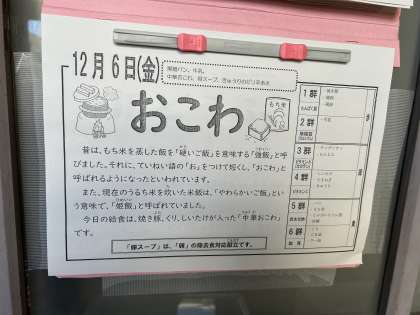 12月 6日(金)
黒糖パン、牛乳、
中華おこわ、卵スープ、きゅうりのピリ辛あえ
おこわ
もち米
昔は、もち米を蒸した飯を「硬いご飯」を意味する「強飯」と呼
びました。それに、ていねい語の「お」をつけて短くし、「おこわ」と
呼ばれるようになったといわれています。
また、現在のうるち米を炊いた米飯は、「やわらかいご飯」とい
う意味で、「姫飯」と呼ばれていました。
今日の給食は、焼き豚、くり、しいたけが入った「中華おこわ」
です。
「卵スープ」は、「卵」の除去食対応献立です。
1 群
たんぱく質
2 群
無機質
3 群
4 群
5 群
炭水化物
6 群
脂質